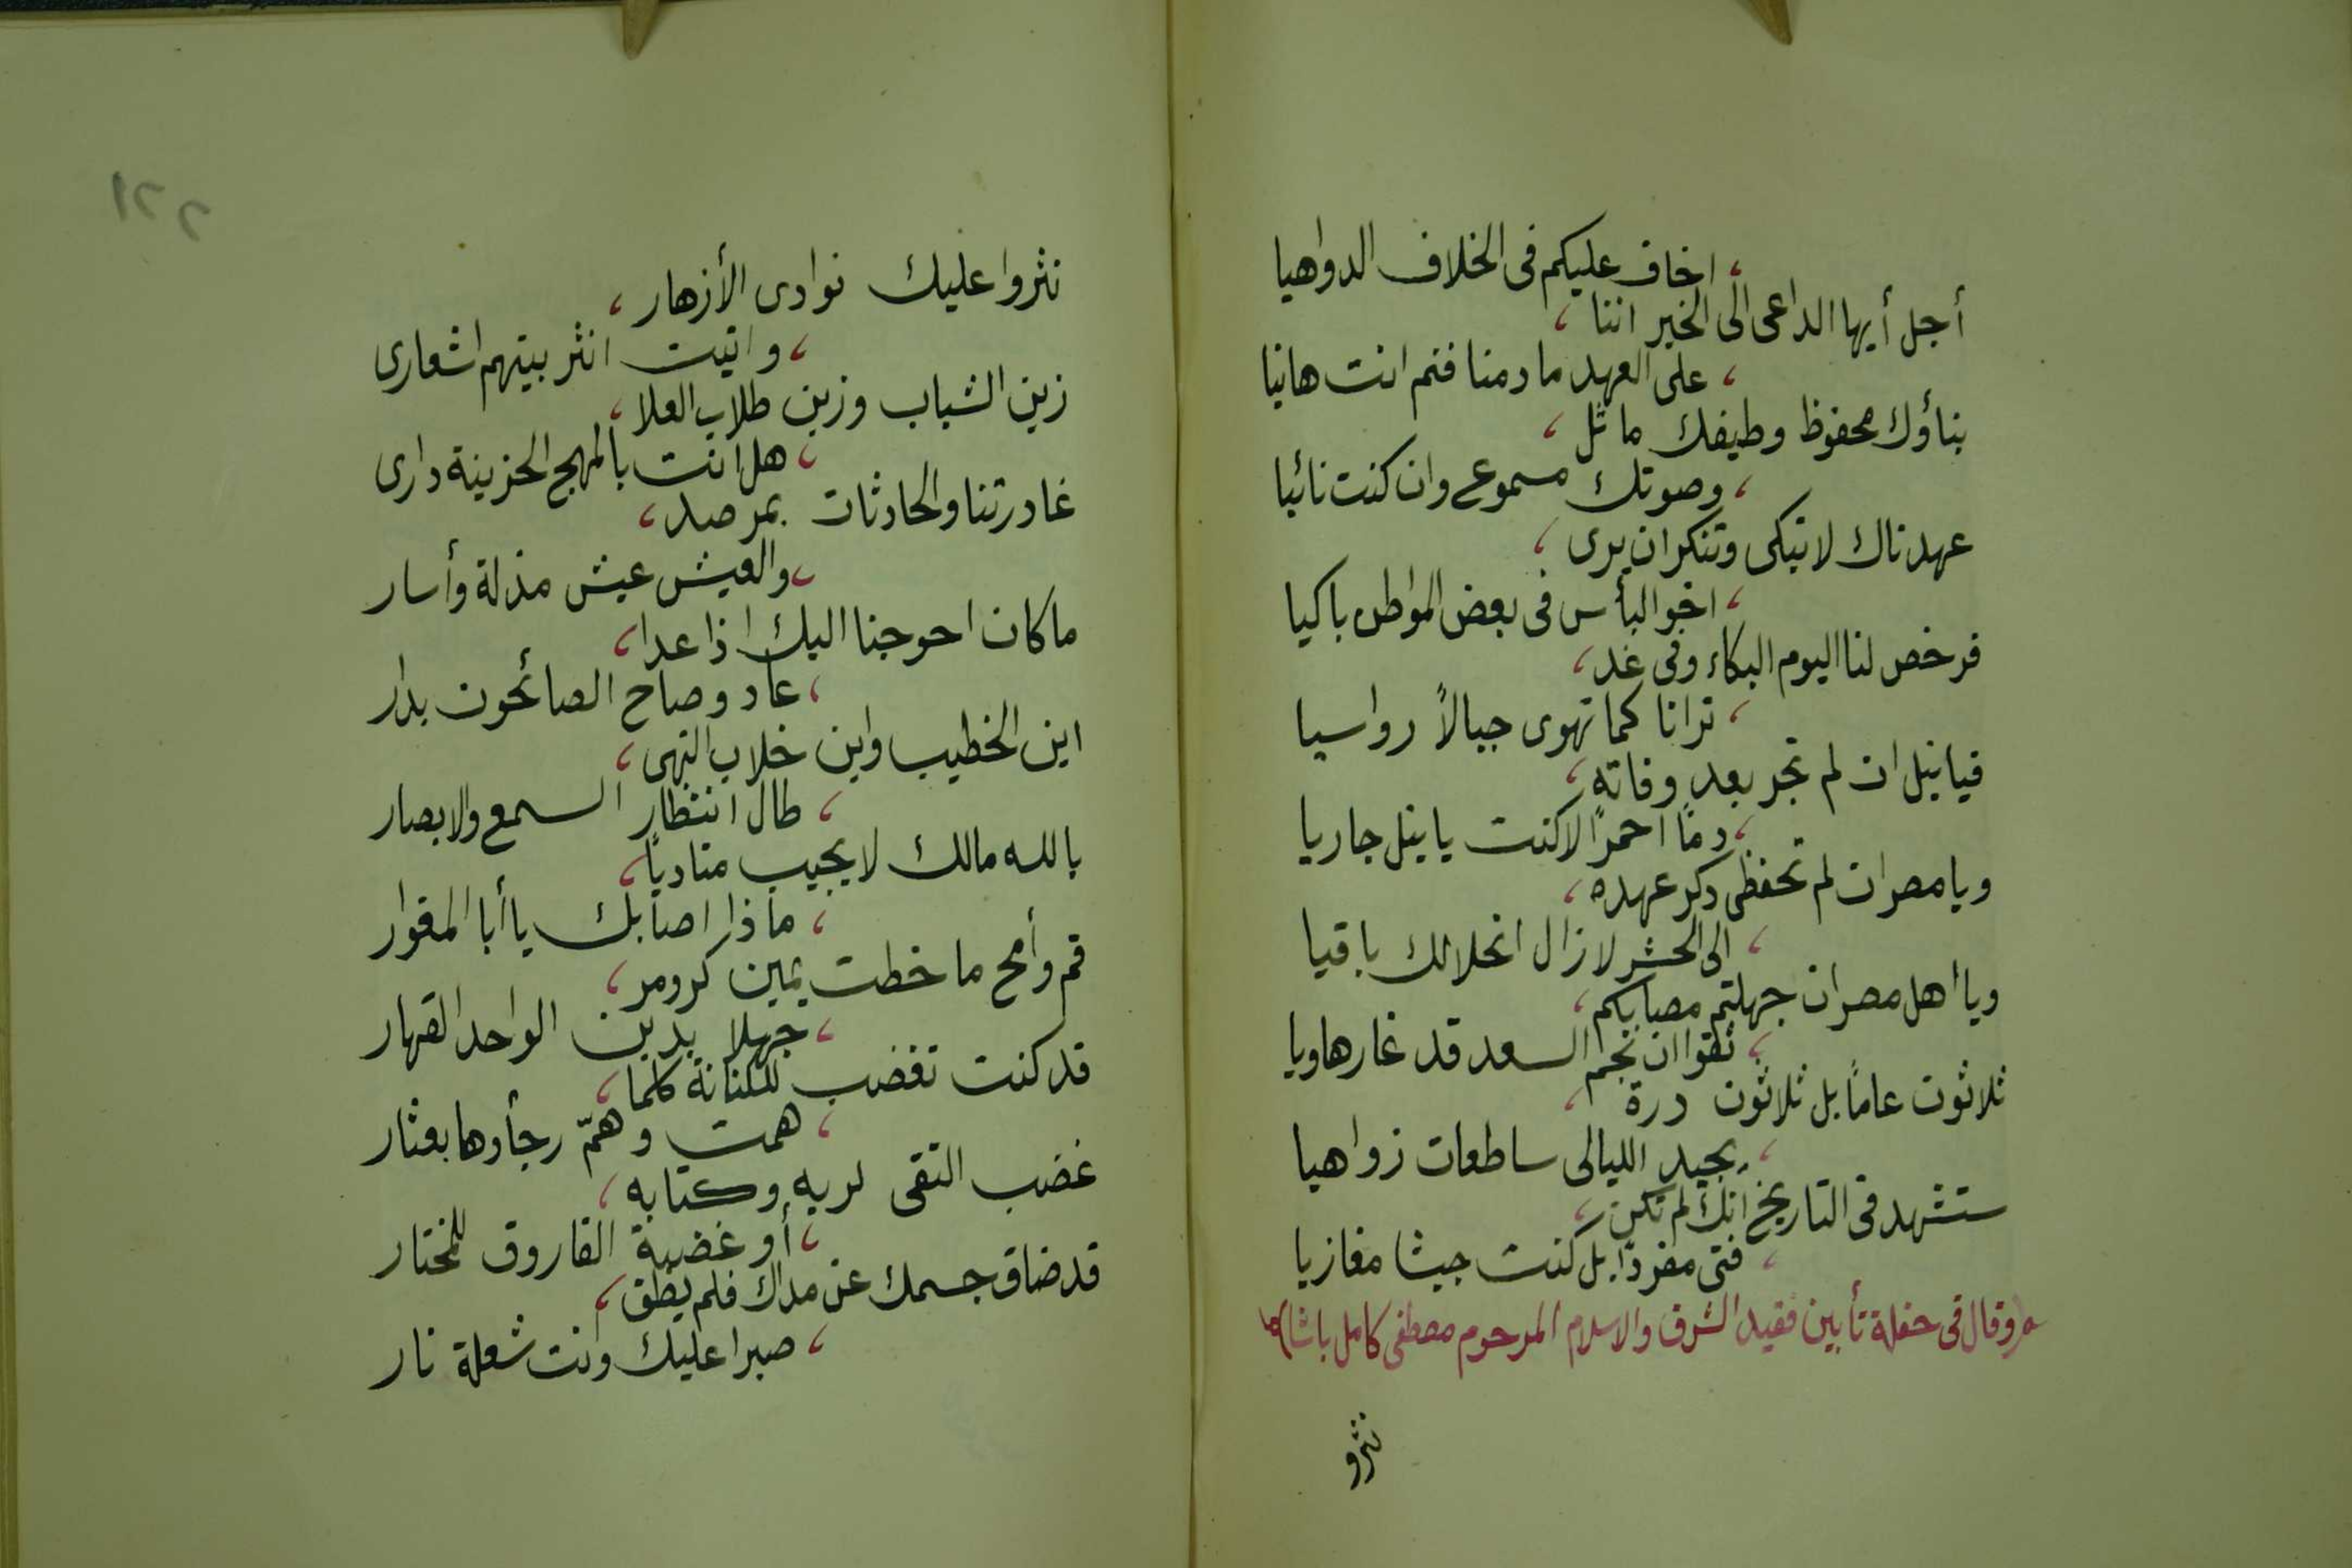 اخاف عليكم فى الخلاف الدواهيا
أجل أيها الداعى الى الخير اننا ،
، على العهد ما دمنا فنم انت هانيا
بناؤك محفوظ وطيفك ماثل ،
، وصوتك مسموع وان كنت نائيا
عهدناك لا تبكى وتنكر ان يرى ،
، اخو البأس فى بعض المواطن باكيا
فرخص لنا اليوم البكاء وفى غد ،
، ترانا كما تهوى جبالاً رواسيا
فيا نيل ان لم تجر بعد وفاته ،
، دماً احمراً لا كنت يا نيل جاريا
ويا مصر ان لم تحفظى ذكر عهده ،
، الى الحشر لا زال انحلالك باقيا
ويا اهل مصر ان جهلتم مصابكم ،
، ثقوا ان نجم السعد قد غار هاويا
ثلاثون عاماً بل ثلاثون درة ،
، بجيد الليالى ساطعات زواهيا
ستشهد فى التاريخ انك لم تكن ،
، فتى مفرداً بل كنت جيشا مغازيا
(وقال فى حفلة تأبين فقيد الشرق والاسلام المرحوم مصطفى كامل باشا)
نثرو
٢٢١
نثروا عليك نوادى الأزهار ،
، واتيت انثر بينهم اشعارى
زين الشباب وزين طلاب العلا ،
، هل انت بالمهج الحزينة دارى
غادرتنا والحادثات بمرصد ،
، والعيش عيش مذلة وأسار
ما كان احوجنا اليك اذا عدا ،
، عاد وصاح الصائحون بدار
اين الخطيب واين خلاب النهى ،
، طال انتظار السمع والابصار
بالله مالك لا يجيب مناديا ،
، ماذا اصابك يا أبا المغوار
قم وأمح ما خطت يمين كرومر ،
، جهلا بدين الواحد القهار
قد كنت تغضب للكنانة كلما ،
، همت وهمّ رجأوها بعثار
غضب التقى لربه وكتابه ،
، أو غضبة الفاروق للمختار
قد ضاق جسمك عن مداك فلم يطق ،
، صبرا عليك وانت شعلة نار